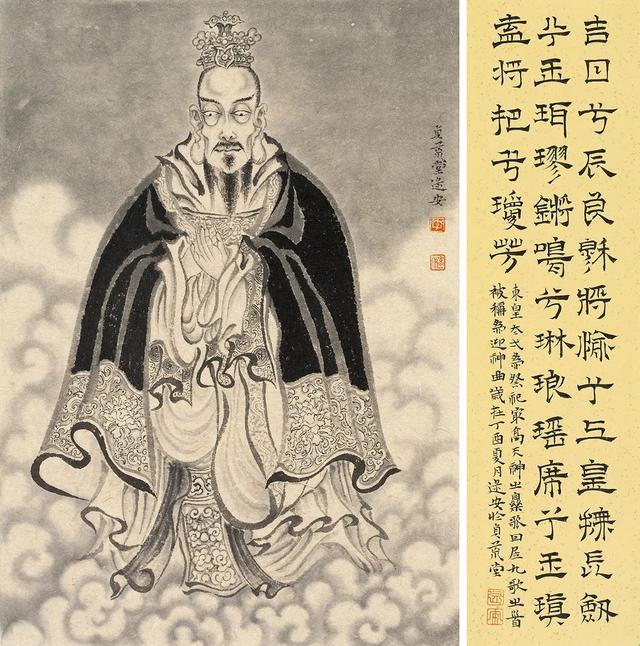 吉日兮辰良穆將愉兮上皇撫長劒
兮玉珥璆鏘鳴兮琳琅瑶席兮玉瑱
盍將把兮瓊芳
東皇太弌爲祭祀最高天神之樂歌因居九歌之首
被稱爲迎神曲歲在丁酉夏月逯安於貞景堂
貞景堂逯安